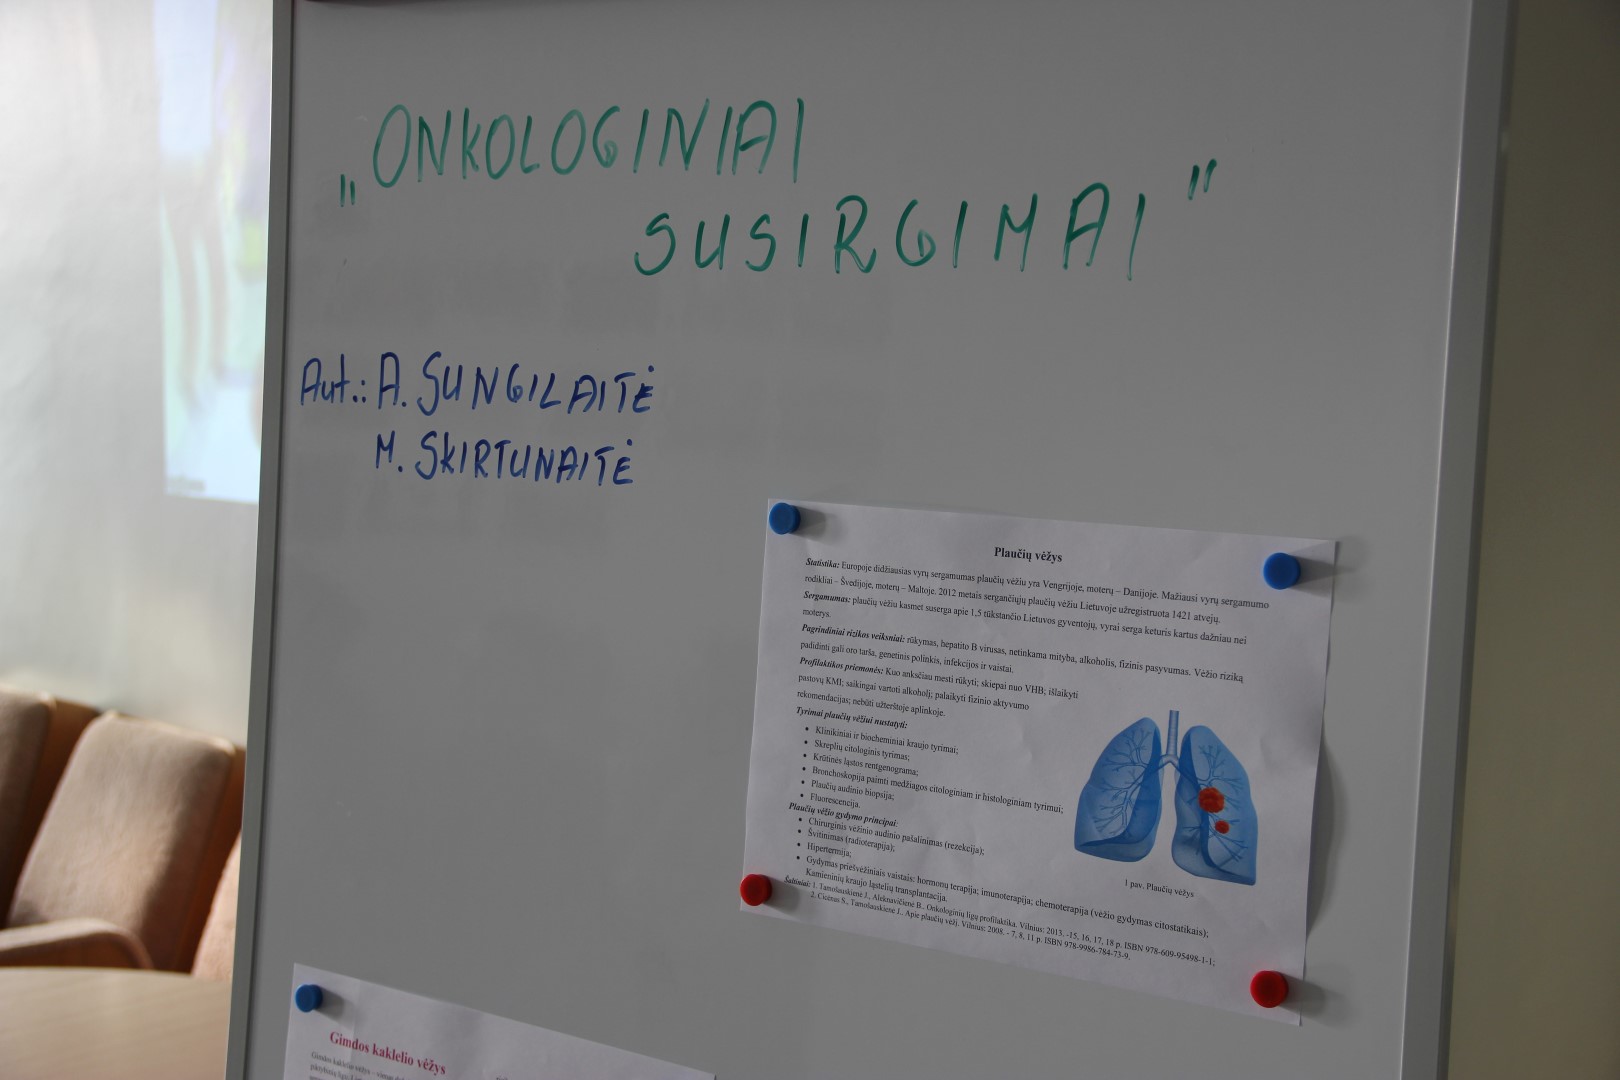 „ONKOLOGINIAI
SUSIRGIMAI"
Aut.: A. SUNGILAITĖ
M. SKIRTUNAITĖ
Plaučių vėžys
Statistika: Europoje didžiausias vyrų sergamumas plaučių vėžiu yra Vengrijoje, moterų – Danijoje. Mažiausi vyrų sergamumo
rodikliai – Švedijoje, moterų – Maltoje. 2012 metais sergančiųjų plaučių vėžiu Lietuvoje užregistruota 1421 atvejų.
Sergamumas: plaučių vėžiu kasmet suserga apie 1,5 tūkstančio Lietuvos gyventojų, vyrai serga keturis kartus dažniau nei
moterys.
Pagrindiniai rizikos veiksniai: rūkymas, hepatito B virusas, netinkama mityba, alkoholis, fizinis pasyvumas. Vėžio riziką
padidinti gali oro tarša, genetinis polinkis, infekcijos ir vaistai.
Profilaktikos priemonės: Kuo anksčiau mesti rūkyti; skiepai nuo VHB; išlaikyti
pastovų KMI; saikingai vartoti alkoholį; palaikyti fizinio aktyvumo
rekomendacijas; nebūti užterštoje aplinkoje.
Tyrimai plaučių vėžiui nustatyti:
• Klinikiniai ir biocheminiai kraujo tyrimai;
• Skreplių citologinis tyrimas;
• Krūtinės ląstos rentgenograma;
• Bronchoskopija paimti medžiagos citologiniam ir histologiniam tyrimui;
• Plaučių audinio biopsija;
• Fluorescencija.
Plaučių vėžio gydymo principai:
• Chirurginis vėžinio audinio pašalinimas (rezekcija);
• Švitinimas (radioterapija);
• Hipertermija;
• Gydymas priešvėžiniais vaistais: hormonų terapija; imunoterapija; chemoterapija (vėžio gydymas citostatikais);
Kamieninių kraujo ląstelių transplantacija.
1 pav. Plaučių vėžys
Šaltiniai: 1. Tamošauskienė J., Aleknavičienė B., Onkologinių ligų profilaktika. Vilnius: 2013. -15, 16, 17, 18 p. ISBN 978-609-95498-1-1;
2. Cicėnas S., Tamošauskienė J., Apie plaučių vėžį. Vilnius: 2008. - 7, 8, 11 p. ISBN 978-9986-784-73-9.
Gimdos kaklelio vėžys
Gimdos kaklelio vėžys – vienas